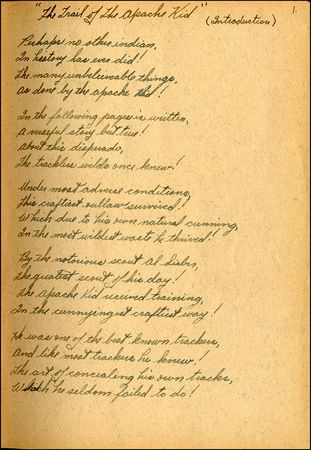 "The Trail of The Apache Kid"
(Introduction)
1.
Perhaps no other indian,
In history has ever did!
The many unbelieveable things,
As done by the apache Kid!
In the following pages is written,
A verseful story but true!
About this disperado,
The trackless wilds once knew!
Under most adverse conditions,
This craftiest outlaw survived!
Which due to his own natural cunning,
In the most wildest waste he thrived!
By the notorious scout Al Sieber,
The greatest scout of his day!
The Apache Kid recieved training,
In the cunnyingest craftiest way!
He was one of the best known trackers,
And like most trackers he knew!
The art of concealing his own tracks,
Which he seldom failed to do!